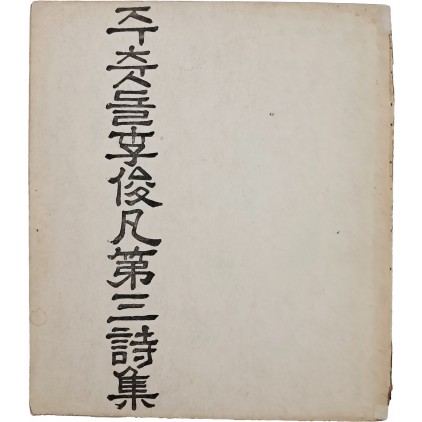 주춧돌李俊凡第三詩集